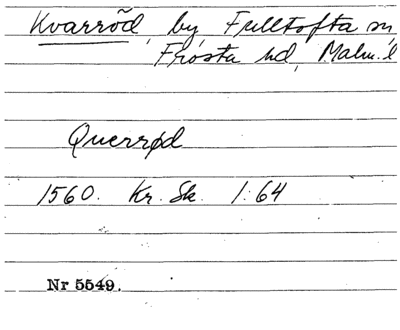 Kvarröd, by, Fulltofta sn
Frosta hd, Malm. l
Querrød
1560. Kr. Sk. 1:64
Nr 5549.